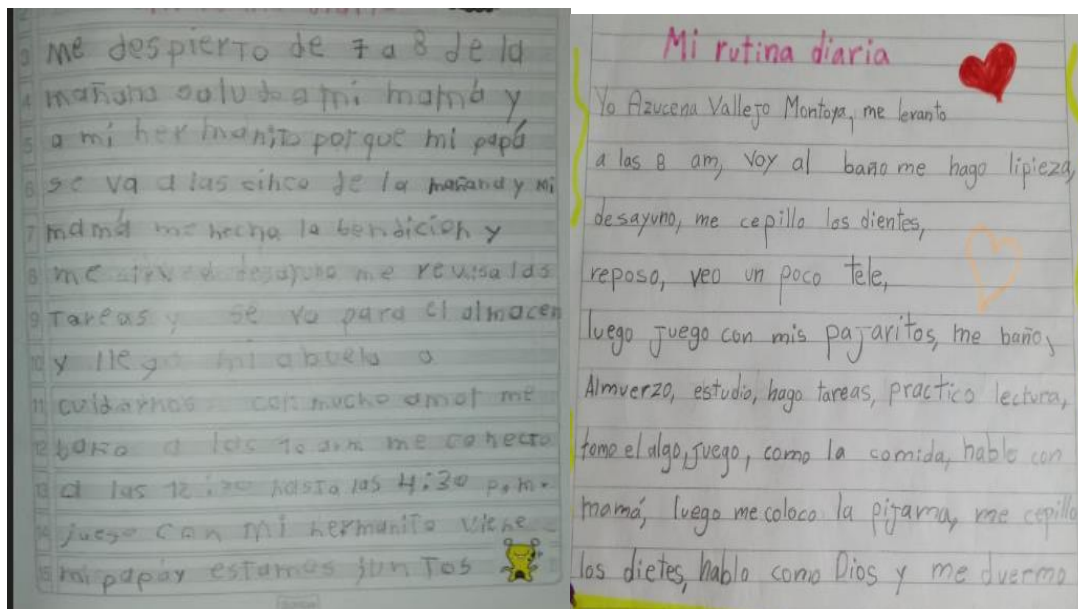 me despierto de 7 a 8 de la
mañana saludo a mi mamá y
a mi hermanito porque mi papá
se va a las cinco de la mañana y mi
mamá me hecha la bendicion y
me sirve el desayuno me revisa las
Tareas y se va para el almacen
y llega mi abuela a
cuidarnos con mucho amor me
baño a las 10 am me conecto
a las 12:30 hasta las 4:30 p.m.
juego con mi hermanito viene
mi papá y estamos junTos
Mi rutina diaria
Yo Azucena Vallejo Montoya, me levanto
a las 8 am, voy al baño me hago lipieza,
desayuno, me cepillo los dientes,
reposo, veo un poco tele,
luego juego con mis pajaritos, me baño,
Almuerzo, estudio, hago tareas, practico lectura,
tomo el algo, juego, como la comida, hablo con
mamá, luego me coloco la pijama, me cepillo
los dietes, hablo como Dios y me duermo